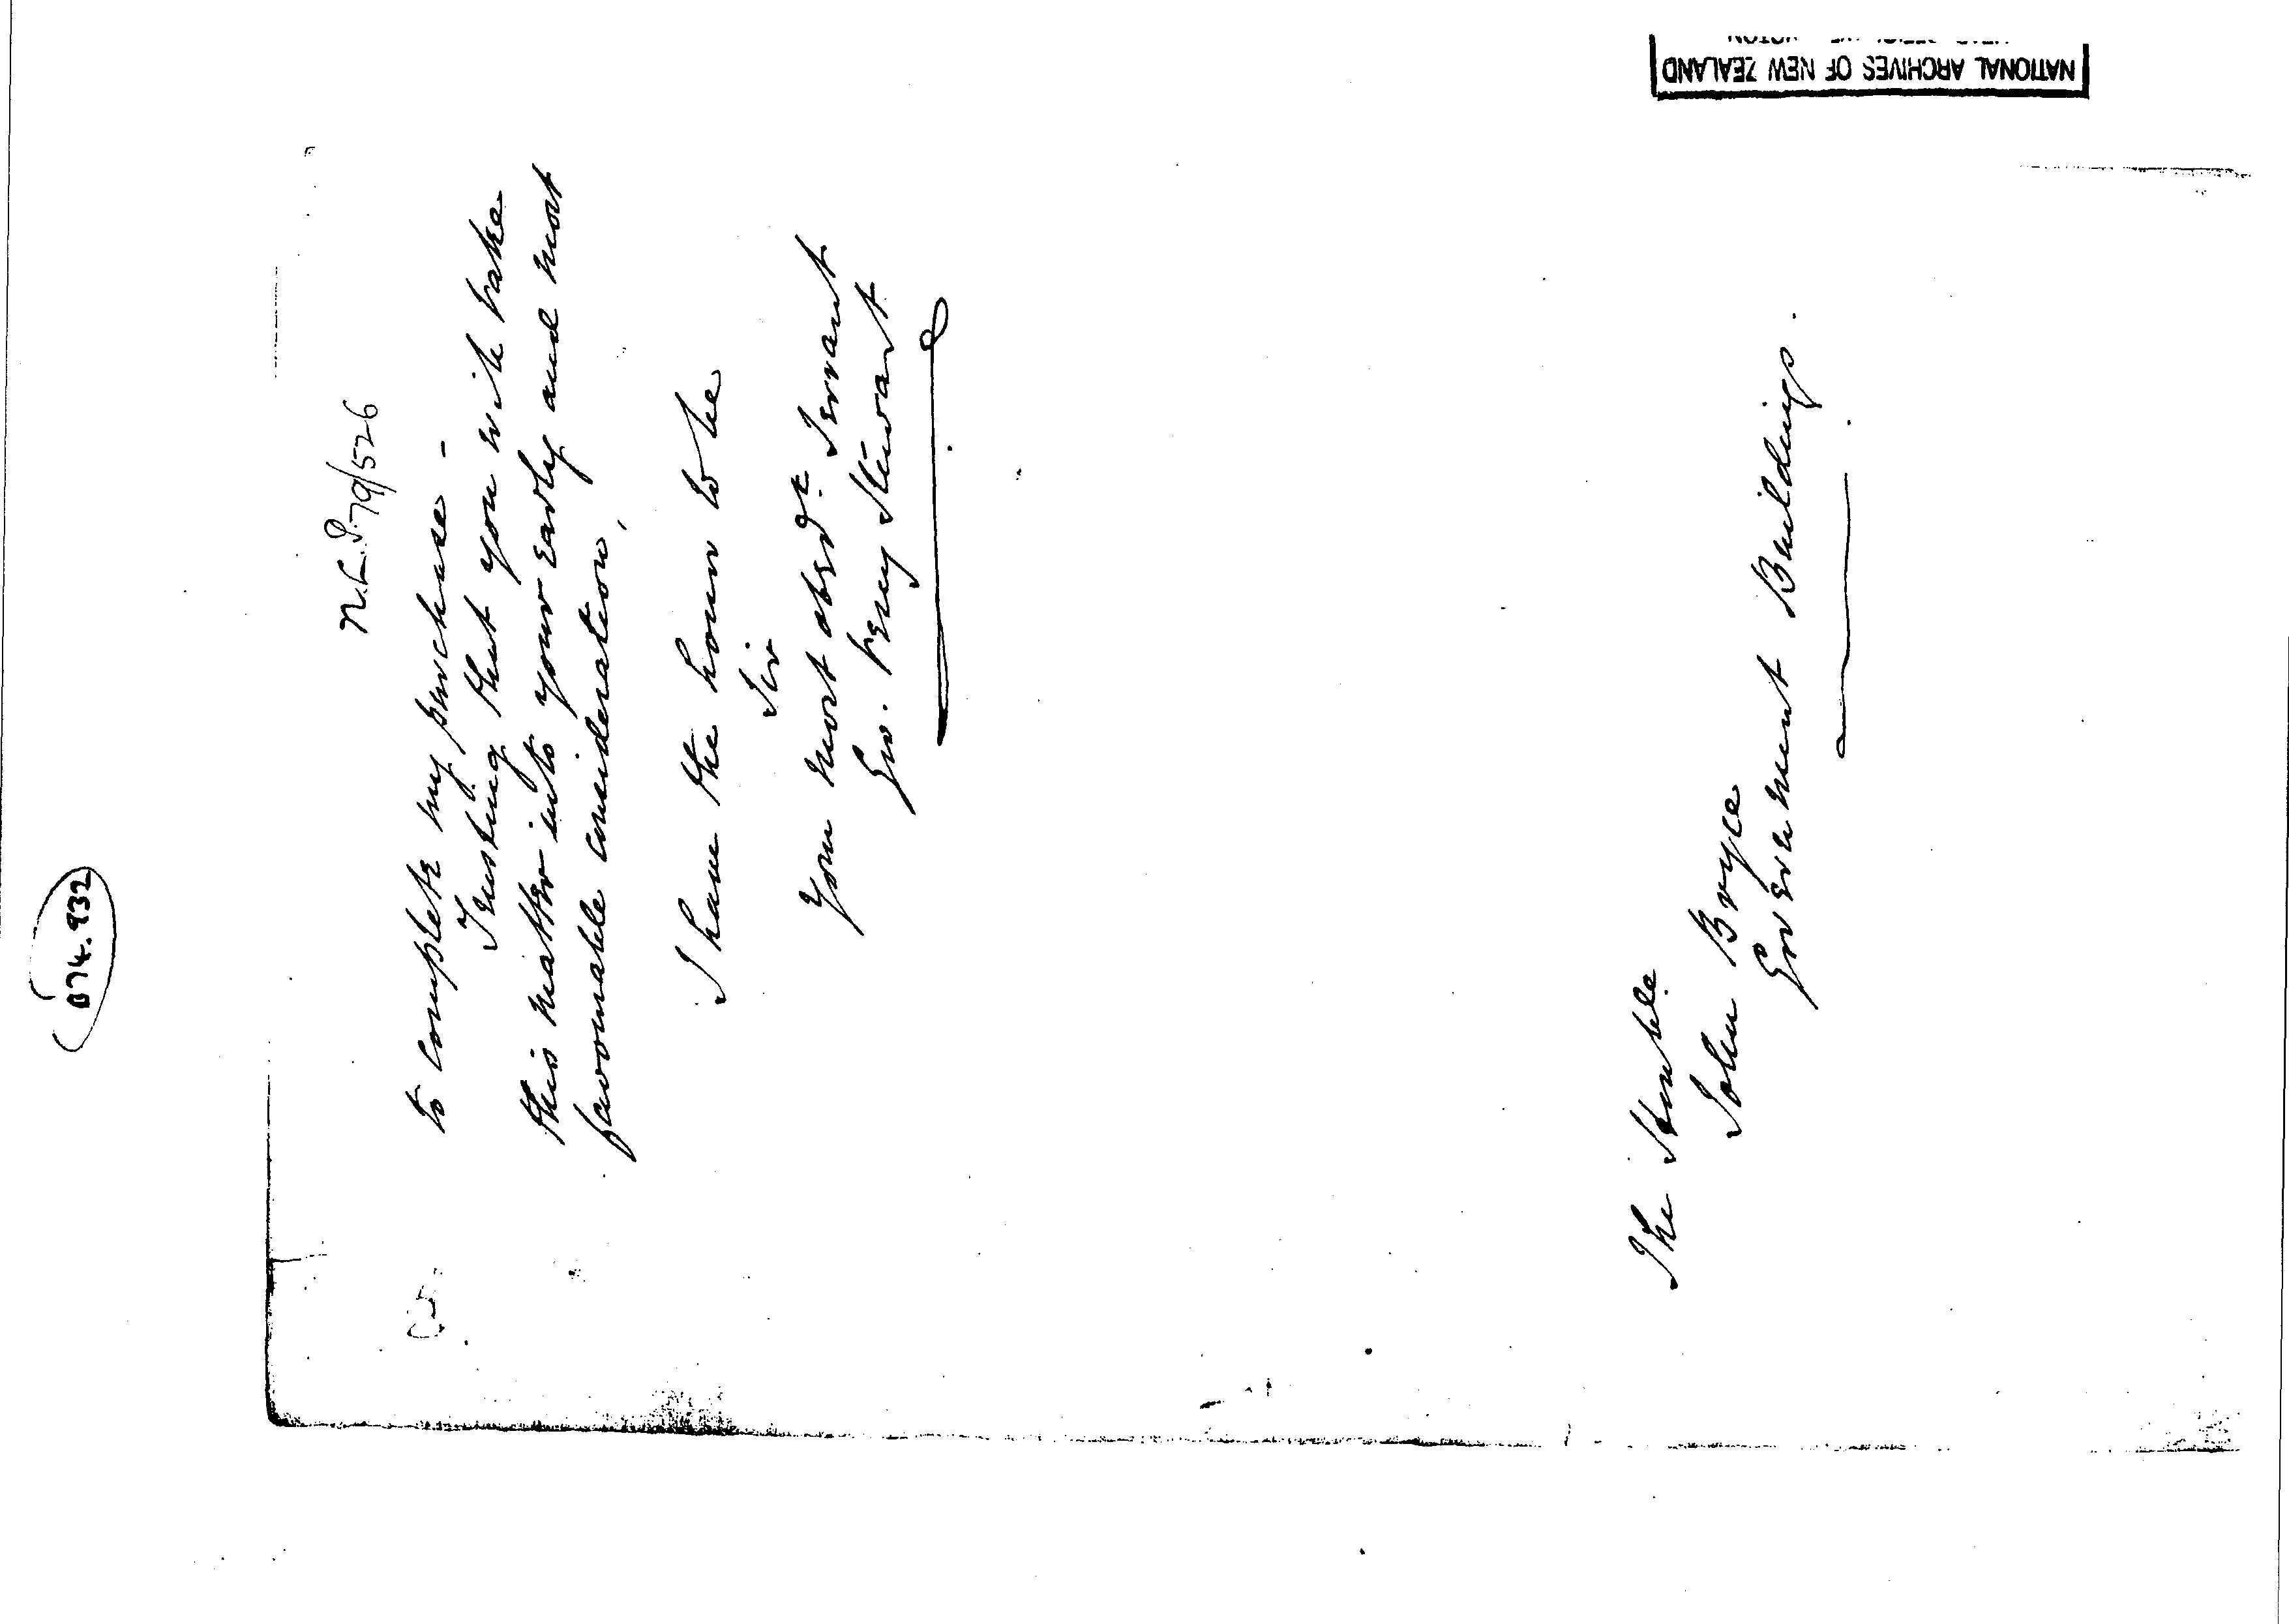 B74.932
N.L.P. 79/526
to complete my purchase -
Trusting that you will take
this matter into your early and most
favourable consideration,
I have the honor to be
Sir
Your most obedt. Servant
Geo. Vesey Stewart
The Honble.
John Bryce
Government Buildings.
NATIONAL ARCHIVES OF NEW ZEALAND